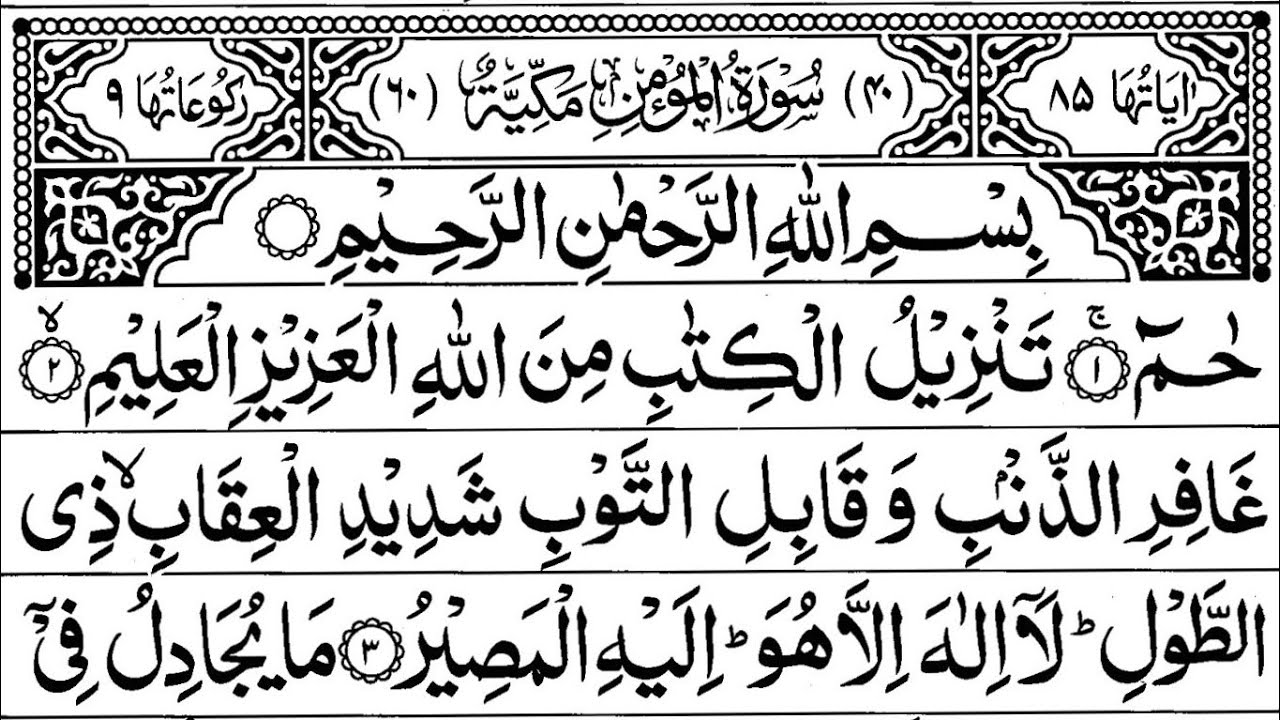 اٰيَاتُهَا ۸۵ (۴۰) سُوْرَةُ الْمُؤْمِنِ مَكِّيَّةٌ (۶۰) رُكُوْعَاتُهَا ۹
بِسْمِ اللّٰهِ الرَّحْمٰنِ الرَّحِيْمِ
حٰمٓ ۚ ۱ تَنْزِيْلُ الْكِتٰبِ مِنَ اللّٰهِ الْعَزِيْزِ الْعَلِيْمِ ۙ ۲
غَافِرِ الذَّنْۢبِ وَ قَابِلِ التَّوْبِ شَدِيْدِ الْعِقَابِ ۙ ذِی
الطَّوْلِ ؕ لَاۤ اِلٰهَ اِلَّا هُوَ ؕ اِلَيْهِ الْمَصِيْرُ ۳ مَا يُجَادِلُ فِیْۤ